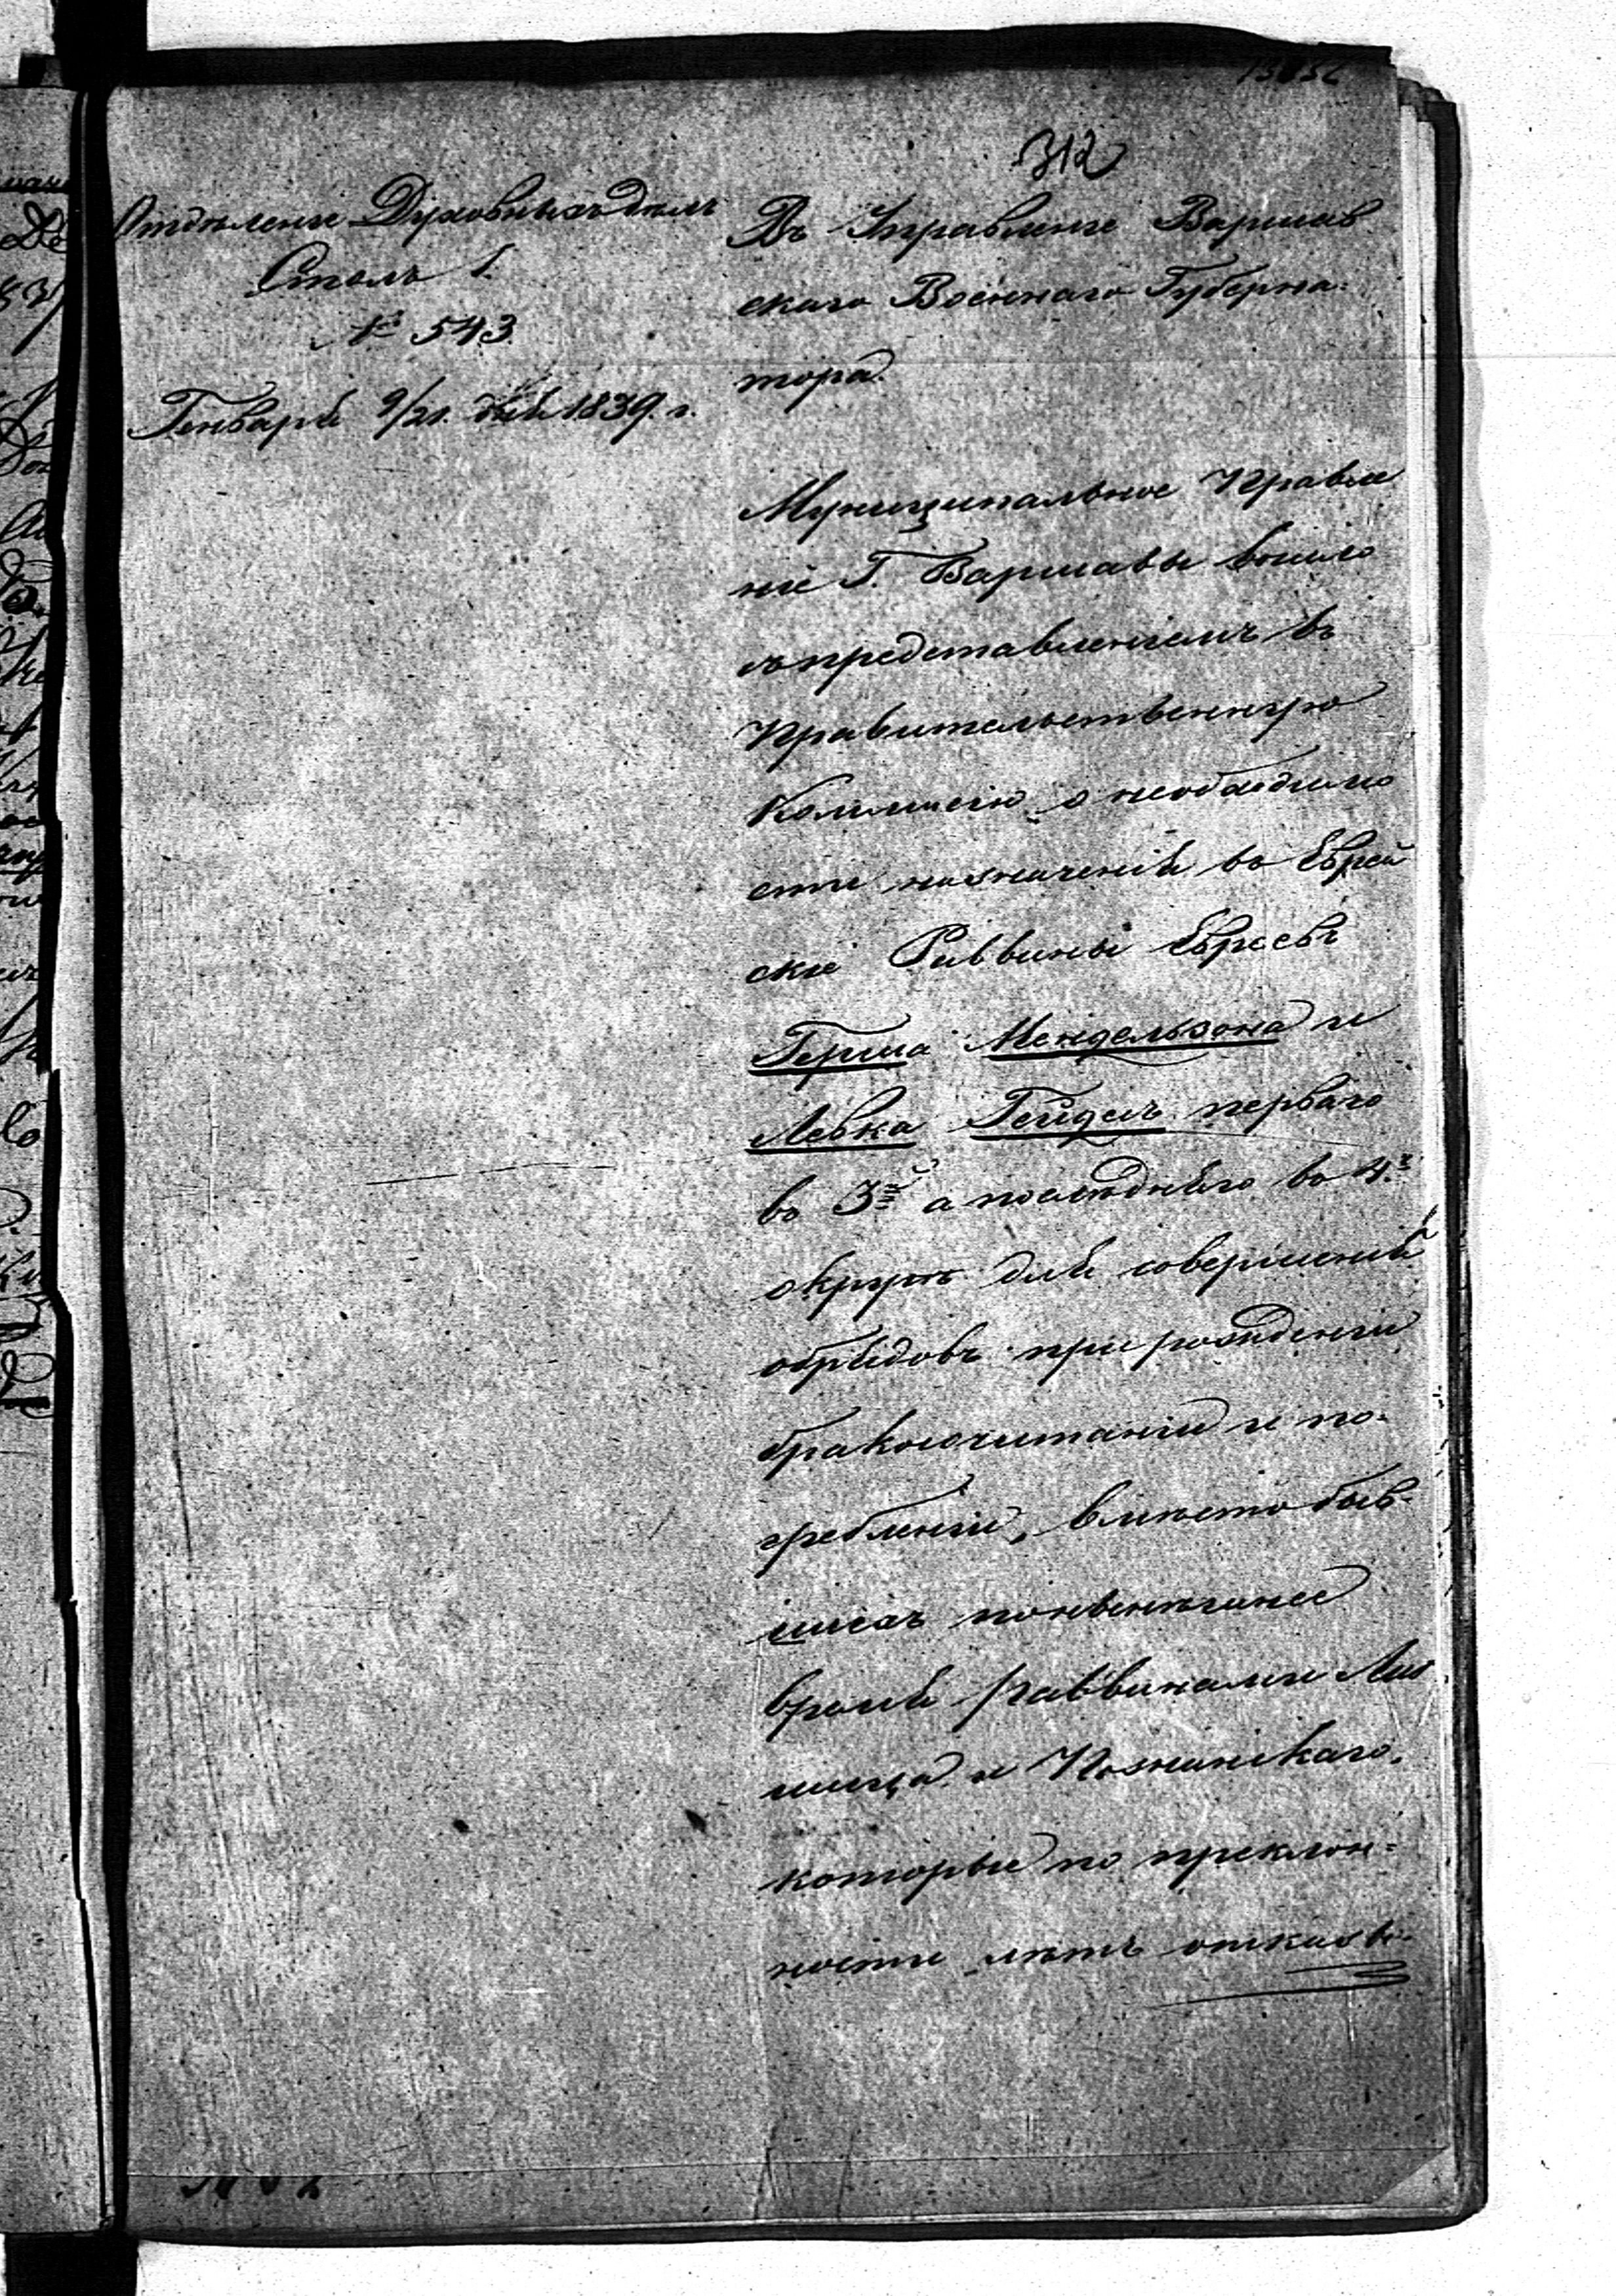 312
Отдѣленіе Духовныхъ дѣлъ
Столъ 1.
№ 543.
Генваря 9/21. дня 1839. г.
Въ Управленіе Варшав
скаго Военнаго Губерна-
тора.
Муниципальное Правле
ніе Г. Варшавы вошло
съ представленіемъ въ
Правительственную
Коммисію о необходимо
сти назначенія въ Еврей
скіе Раввины Евреевъ
Герша Мендельзона и
Левка Гейделъ перваго
въ 3й а послѣдняго въ 4й
округѣ для совершенія
обрядовъ при рожденіи
бракосочитаніи и по-
гребленіи, вмѣсто быв-
шихъ
врамя раввинами Лип
шица и Познанскаго,
которые по преклон-
ности лѣтъ отказы-